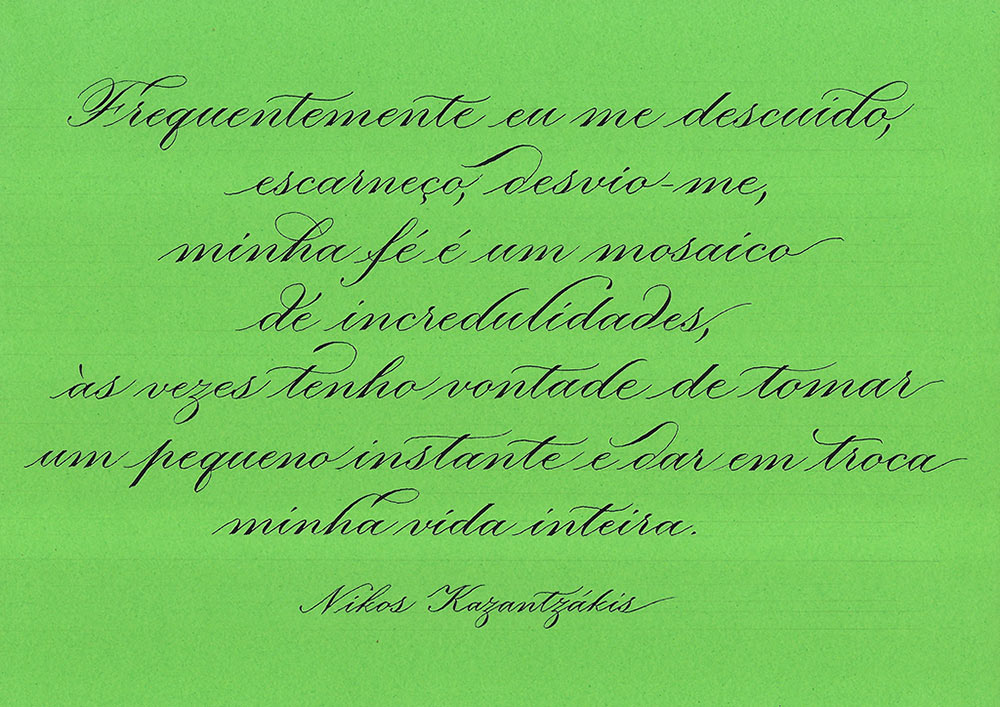 Frequentemente eu me descuido,
escarneço, desvio-me,
minha fé é um mosaico
de incredulidades,
às vezes tenho vontade de tomar
um pequeno instante e dar em troca
minha vida inteira.
Nikos Kazantzákis